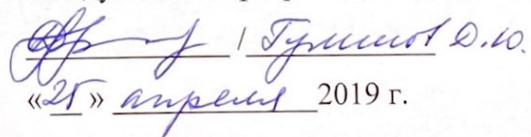 / Гумиров Д.Ю.
«25» апреля 2019 г.